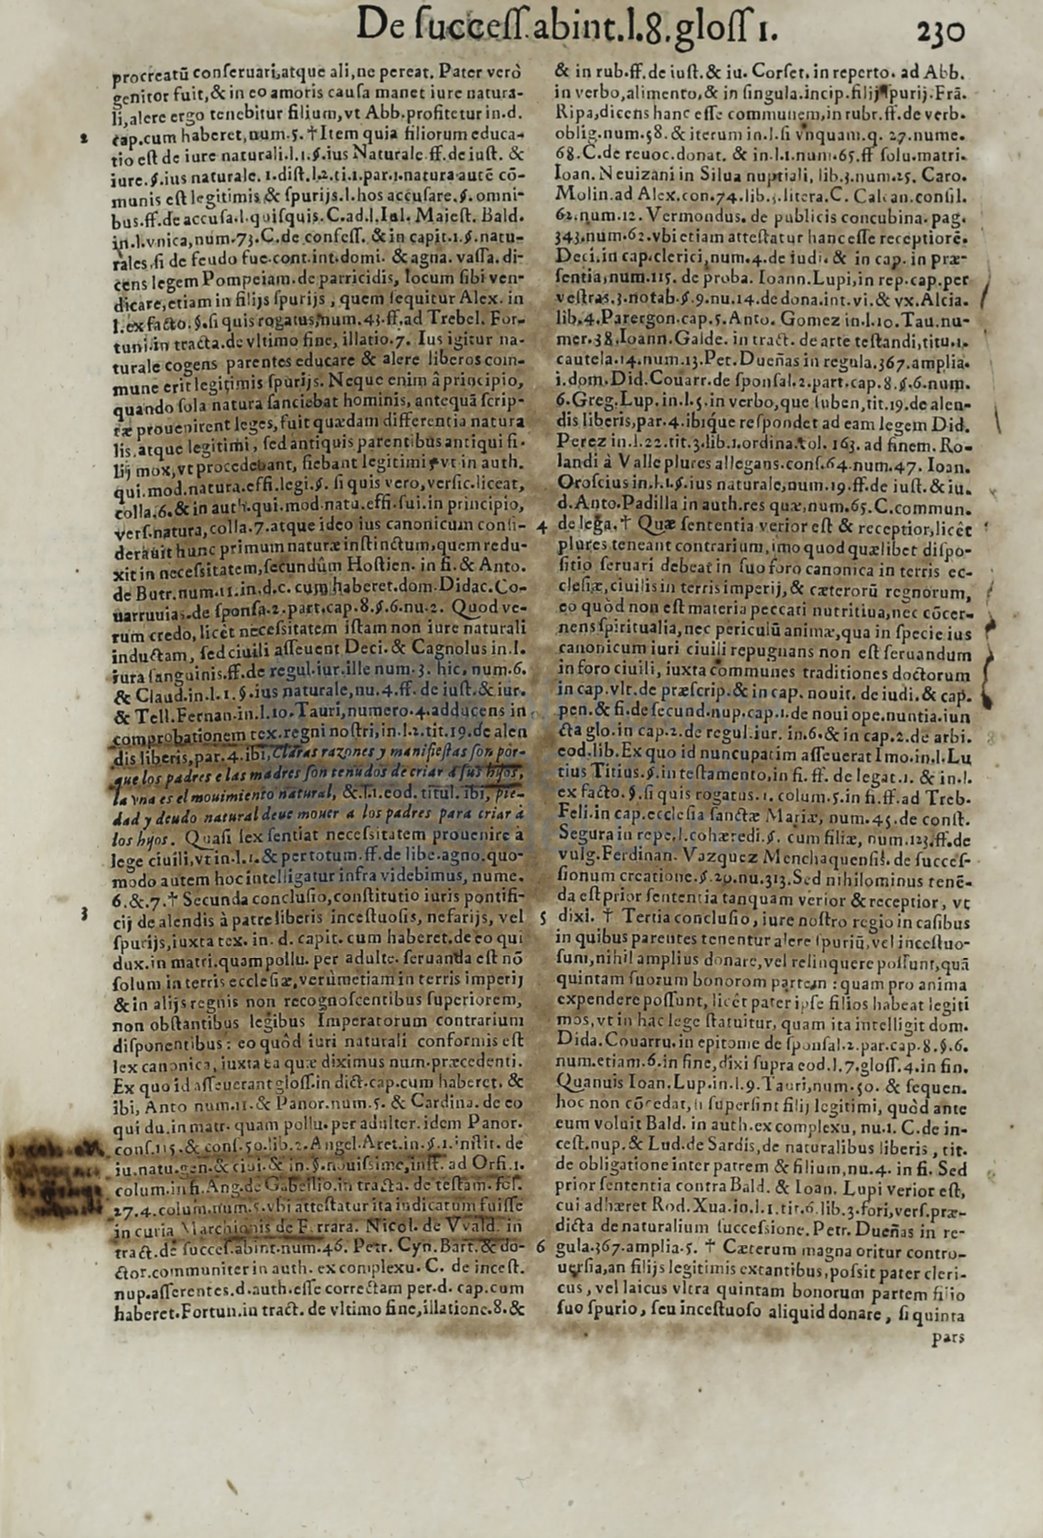 De success. abint.l.8.gloss 1. 230
procreatū conseruari,atque ali,ne pereat. Pater verò
genitor fuit,& in eo amoris causa manet iure natura-
li,alere ergo tenebitur filium,vt Abb.profitetur in.d.
2 cap.cum haberet,num.5. †Item quia filiorum educa-
tio est de iure naturali.l.1.§.ius Naturale.ff.de iust. &
iure.§.ius naturale. 1.dist.l.2.ti.1.par.1.natura autē cō-
munis est legitimis & spurijs.l.hos accusare.§.omni-
bus.ff.de accusa.l.quisquis.C.ad.l.Iul.Maiest.Bald.
in.l.vnica,num.73.C.de confess. & in capit.1.§.natu-
rales.si de feudo fue.cont.int.domi. & agna.vassa.di-
cens legem Pompeiam.de parricidis, locum sibi ven-
dicare,etiam in filijs spurijs , quem sequitur Alex. in
l.ex facto.§.si quis rogatus,num.43.ff.ad Trebel. For-
tuni.in tracta.de vltimo fine, illatio.7. Ius igitur na-
turale cogens parentes educare & alere liberos com-
mune erit legitimis spurijs. Neque enim à principio,
quando sola natura sanciebat hominis, antequā scrip-
tæ prouenirent leges,fuit quædam differentia natura
lis.atque legitimi, sed antiquis parentibus antiqui fi-
lij mox,vt procedebant, fiebant legitimi, vt in auth.
qui.mod.natura.effi.legi.§. si quis vero,versic.liceat,
colla.6.& in auth.qui.mod.natu.effi.sui.in principio,
vers.natura,colla.7.atque ideo ius canonicum consi-
derauit hunc primum naturæ instinctum,quem redu-
xit in necessitatem,secundûm Hostien. in fi.& Anto.
de Butr.num.11.in.d.c. cum haberet.dom.Didac.Co-
uarruuias.de sponsa.2.part.cap.8.§.6.nu.2. Quod ve-
rum credo, licèt necessitatem istam non iure naturali
inductam, sed ciuili asseuent Deci. & Cagnolus in.l.
iura sanguinis.ff.de regul.iur.ille num.3. hic, num.6.
& Claud.in.l.1.§.ius naturale,nu.4.ff. de iust.& iur.
& Tell.Fernan.in.l.10.Tauri,numero.4.adducens in
comprobationem tex.regni nostri,in.l.2.tit.19.de alen
dis liberis,par.4.ibi, Claras razones y manifiestas son por-
que los padres e las madres son tenudos de criar a sus hijos,
la vna es el mouimiento natural, &.l.1.eod. titul. ibi, pie-
dad y deudo natural deue mouer a los padres para criar à
los hijos. Quasi lex sentiat necessitatem prouenire à
lege ciuili,vt in.l.1.& per totum.ff.de libe.agno.quo-
modo autem hoc intelligatur infra videbimus, nume.
3 6.&.7.† Secunda conclusio,constitutio iuris pontifi-
cij de alendis à patre liberis incestuosis, nefarijs, vel
spurijs,iuxta tex. in. d. capit. cum haberet.de eo qui
dux.in matri.quam pollu. per adulte. seruanda est nō
solum in terris ecclesiæ,verùm etiam in terris imperij
& in alijs regnis non recognoscentibus superiorem,
non obstantibus legibus Imperatorum contrarium
disponentibus: eo quòd iuri naturali conformis est
lex canonica, iuxta ea quæ diximus num.præcedenti.
Ex quo id asseuerant gloss.in dict.cap.cum haberet. &
ibi, Anto num.11.& Panor.num.5. & Cardina. de eo
qui du.in matr. quam pollu. per adulter. idem Panor.
cons.115.& cons.50.lib.2.Angel.Aret.in.§.1.instit. de
iu.natu.gen.& ciui.& in.§.nouissime,in ff. ad Orfi.1.
colum.in fi.Ang.de Gabellio.in tracta. de testam. fol.
27.4.colum.num.5.vbi attestatur ita iudicatum fuisse
in curia Marchionis de Ferrara. Nicol. de Vvald. in
tract.de succes.abint.num.46. Petr. Cyn.Bart.& do-
ctor.communiter in auth. ex complexu. C. de incest.
nup.asserentes.d.auth.esse correctam per.d. cap.cum
haberet.Fortun.in tract. de vltimo fine,illatione.8.&
& in rub.ff.de iust.& iu. Corset.in reperto. ad Abb.
in verbo,alimento,& in singula.incip.filij spurij.Frā.
Ripa,dicens hanc esse communem,in rubr.ff.de verb.
oblig.num.58.& iterum in.l.si vnquam.q. 27.nume.
68.C.de reuoc.donat. & in.l.1.num.65.ff solu.matri.
Ioan. Neuizani in Silua nuptiali, lib.3.num.25. Caro.
Molin.ad Alex.con.74.lib.3.litera.C. Calcan.consil.
62.num.12. Vermondus. de publicis concubina.pag.
343.num.62.vbi etiam attestatur hanc esse receptiorē.
Deci.in cap.clerici,num.4.de iudi. & in cap. in præ-
sentia,num.115. de proba. Ioann.Lupi,in rep.cap.per
vestras.3.notab.§.9.nu.14.de dona.int.vi.& vx.Alcia.
lib.4.Parergon.cap.5.Anto. Gomez in.l.10.Tau.nu-
mer.38.Ioann.Galde. in tract. de arte testandi,titu.1.
cautela.14.num.13.Pet.Dueñas in regula.367.amplia.
1.dom.Did.Couarr.de sponsal.2.part.cap.8.§.6.num.
6.Greg.Lup.in.l.5.in verbo,que suben,tit.19.de alen-
dis liberis,par.4.ibique respondet ad eam legem Did.
Perez in.l.22.tit.3.lib.1.ordina.col. 163. ad finem. Ro-
landi à Valle plures allegans.cons.64.num.47. Ioan.
Oroscius in.l.1.§.ius naturale,num.19.ff.de iust.& iu.
d.Anto.Padilla in auth.res quæ,num.65.C.commun.
4 de lega.† Quæ sententia verior est & receptior,licèt
plures teneant contrarium,imo quod quælibet dispo-
sitio seruari debeat in suo foro canonica in terris ec-
clesiæ,ciuilis in terris imperij,& cæterorū regnorum,
eo quòd non est materia peccati nutritiua,nec cōcer-
nens spiritualia,nec periculū animæ,qua in specie ius
canonicum iuri ciuili repugnans non est seruandum
in foro ciuili, iuxta communes traditiones doctorum
in cap.vlt.de præscrip.& in cap. nouit. de iudi.& cap.
pen.& fi.de secund.nup.cap.1.de noui ope.nuntia.iun
cta glo.in cap.2.de regul.iur. in.6.& in cap.2.de arbi.
eod.lib.Ex quo id nuncupatim asseuerat Imo.in.l.Lu
tius Titius.§.in testamento,in fi. ff. de legat.1. & in.l.
ex facto.§.si quis rogatus.1. colum.5.in fi.ff.ad Treb.
Feli.in cap.ecclesia sanctæ Mariæ, num.45.de const.
Segura in repe.l.cohæredi.§. cum filiæ, num.123.ff.de
vulg.Ferdinan. Vazquez Menchaquensis. de succes-
sionum creatione.§.20.nu.313.Sed nihilominus tenē-
da est prior sententia tanquam verior & receptior, vt
5 dixi. † Tertia conclusio, iure nostro regio in casibus
in quibus parentes tenentur alere spuriū,vel incestuo-
sum,nihil amplius donare,vel relinquere possunt,quā
quintam suorum bonorum partem : quam pro anima
expendere possunt, licèt pater ipse filios habeat legiti
mos,vt in hac lege statuitur, quam ita intelligit dom.
Dida.Couarru.in epitome de sponsal.2.par.cap.8.§.6.
num.etiam.6.in fine,dixi supra eod.l.7.gloss.4.in fin.
Quanuis Ioan.Lup.in.l.9.Tauri,num.50. & sequen.
hoc non cōcedat,si supersint filij legitimi, quòd ante
eum voluit Bald. in auth.ex complexu, nu.1. C.de in-
cest.nup.& Lud.de Sardis,de naturalibus liberis , tit.
de obligatione inter patrem & filium,nu.4. in fi. Sed
prior sententia contra Bald. & Ioan. Lupi verior est,
cui adhæret Rod.Xua.in.l.1.tit.6.lib.3.fori,vers.præ-
dicta de naturalium successione. Petr. Dueñas in re-
6 gula.367.amplia.5. † Cæterum magna oritur contro-
uersia,an filijs legitimis extantibus,possit pater cleri-
cus , vel laicus vltra quintam bonorum partem filio
suo spurio, seu incestuoso aliquid donare, si quinta
pars